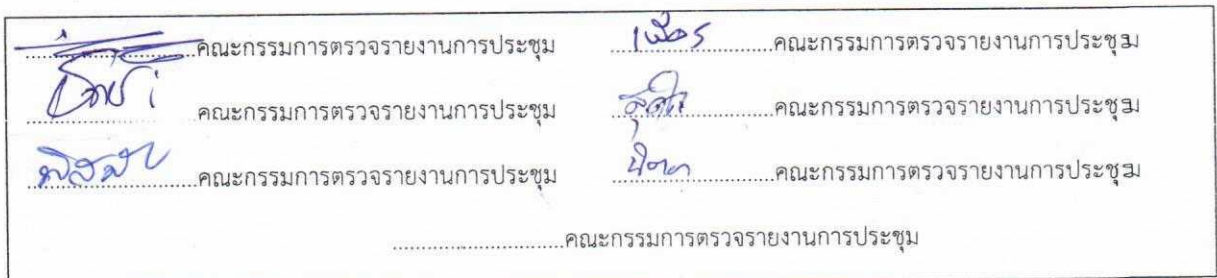 ....................คณะกรรมการตรวจรายงานการประชุม ....................คณะกรรมการตรวจรายงานการประชุม
....................คณะกรรมการตรวจรายงานการประชุม ....................คณะกรรมการตรวจรายงานการประชุม
พิสมัย....................คณะกรรมการตรวจรายงานการประชุม ....................คณะกรรมการตรวจรายงานการประชุม
....................คณะกรรมการตรวจรายงานการประชุม